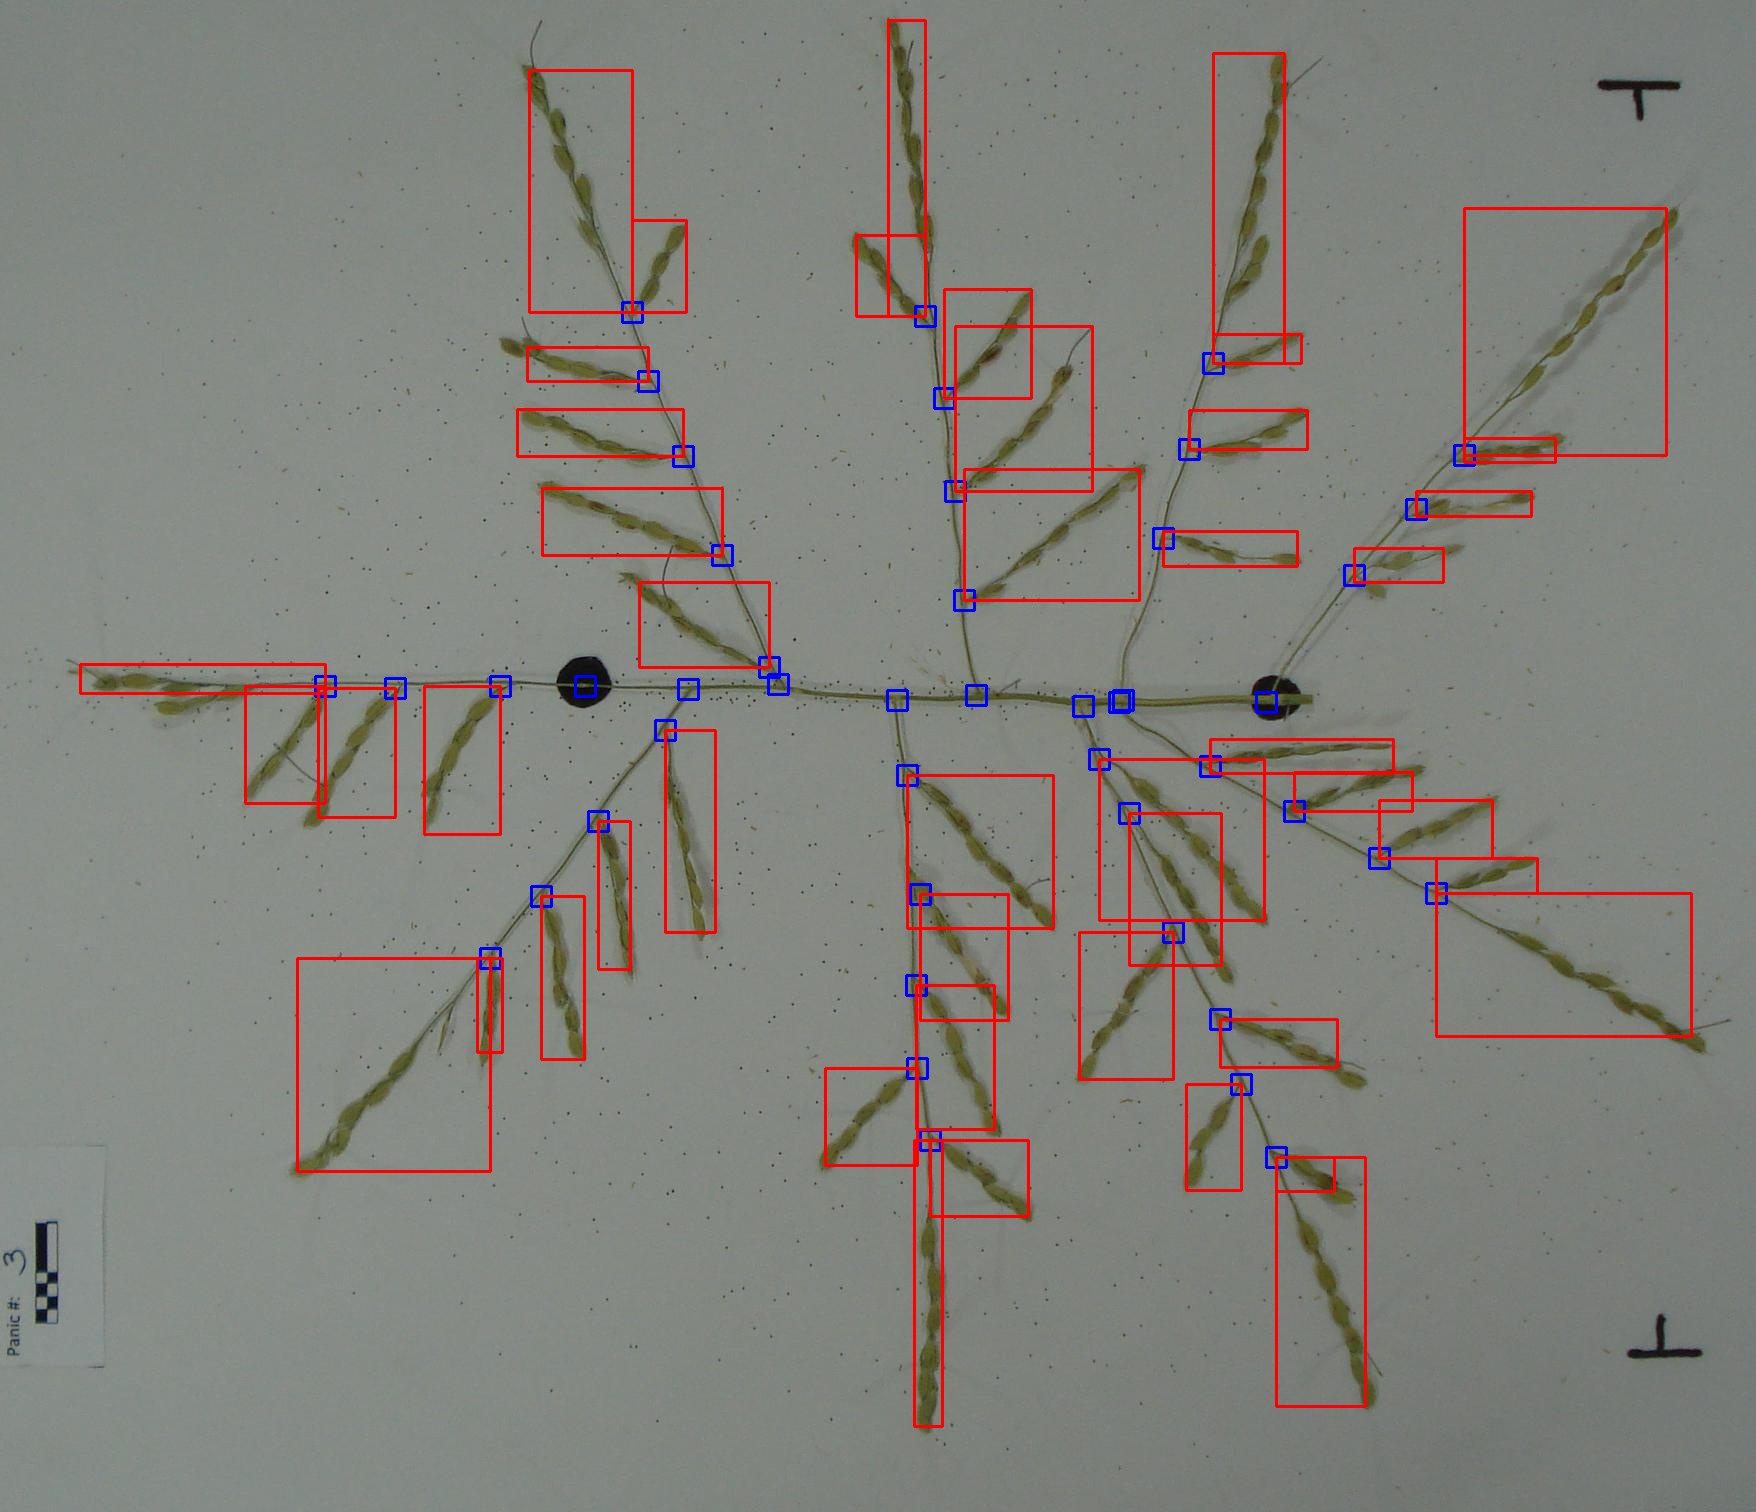 Panic #: 3